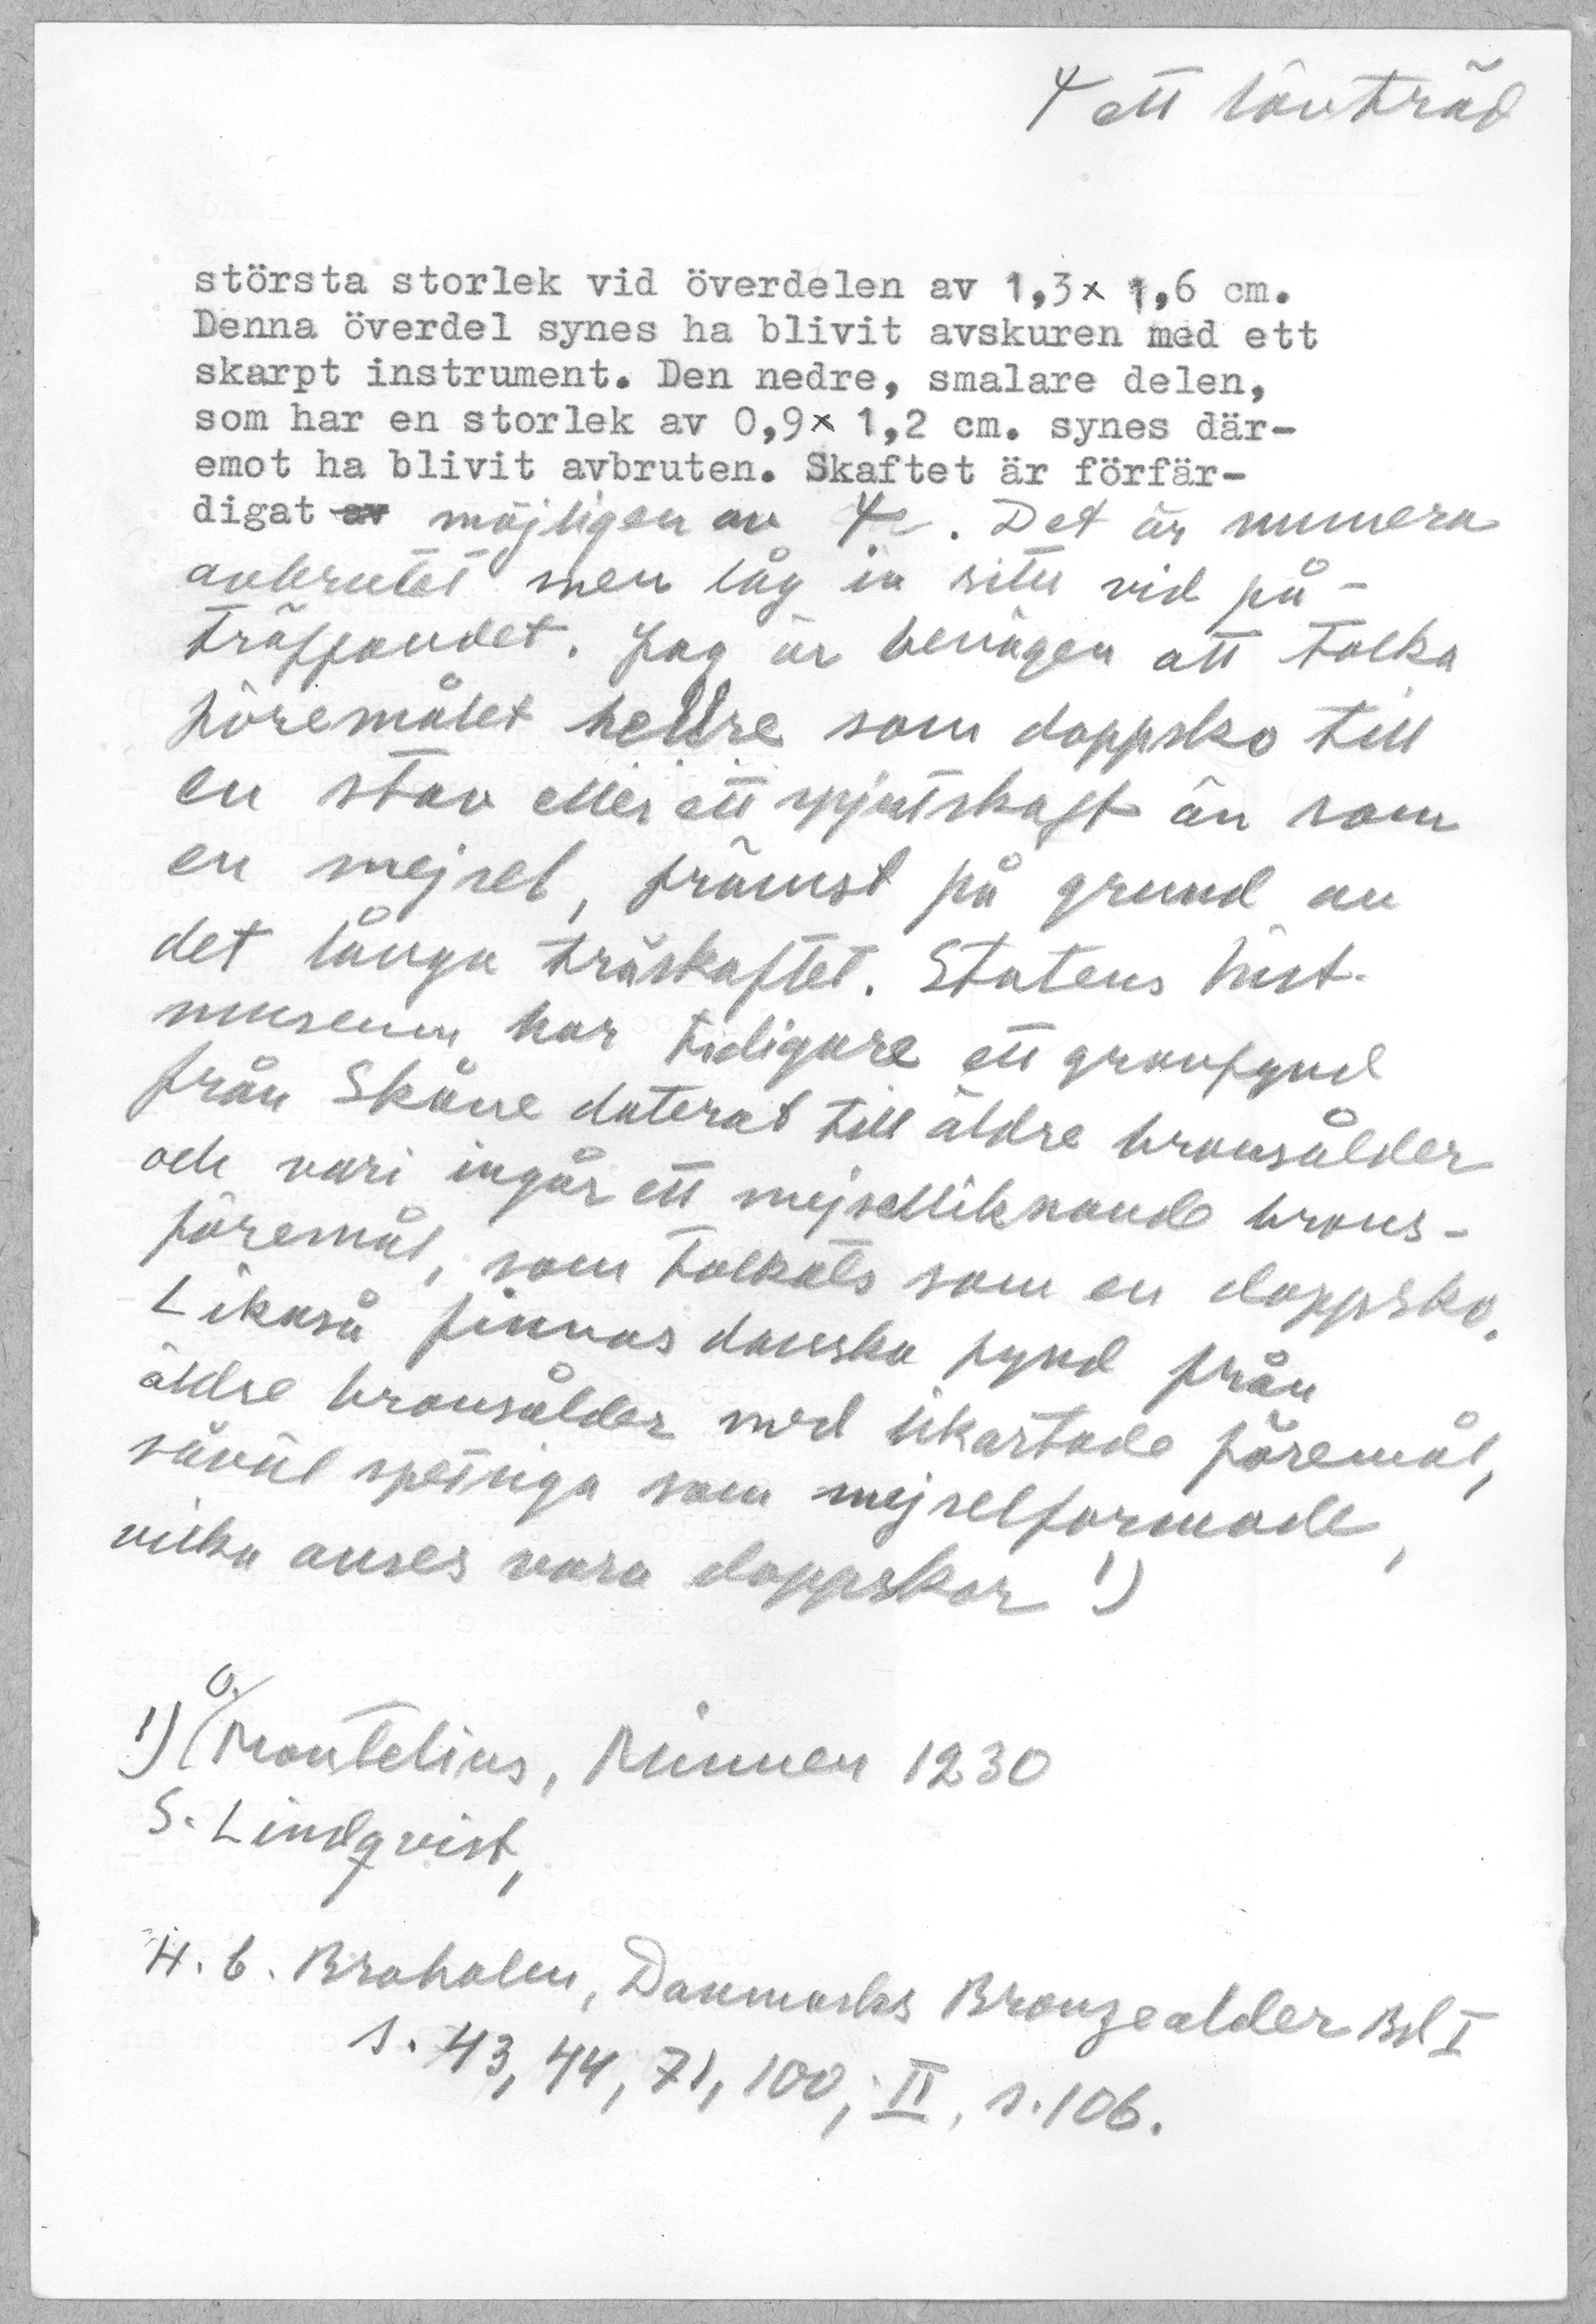 ett lövträd
största storlek vid överdelen av 1,3x 1,6 cm.
Denna överdel synes ha blivit avskuren med ett
skarpt instrument. Den nedre, smalare delen,
som har en storlek av 0,9x 1,2 cm. synes där-
emot ha blivit avbruten. Skaftet är förfär-
digat av möjligen av . Det är numera
avbrutet men låg in situ vid på-
träffandet. Jag är benägen att tolka
föremålet hellre som doppsko till
en stav eller ett spjutskaft än som
en mejsel, främst på grund av
det långa träskaftet. Statens hist.
museum har tidigare ett gravfynd
från Skåne daterat till äldre bronsålder
och vari ingår ett mejselliknande brons-
föremål, som tolkats som en doppsko.
Likaså finnas danska fynd från
äldre bronsålder med likartade föremål,
såväl spetsiga som mejselformade,
vilka anses vara doppskor 1)
1) O. Montelius, Minnen 1230
S. Lindqvist,
H. C. Broholm, Danmarks Bronzealder Bd I
s. 43, 44, 71, 100, II, s. 106.